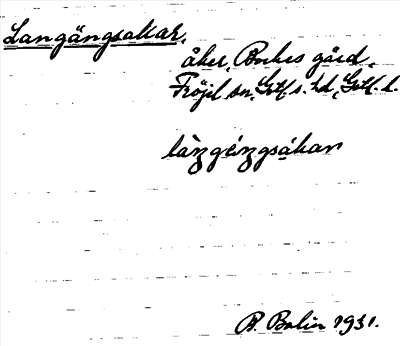 Langängsakar,
åker, Bockes gård,
Fröjel sn, Gotl. s. hd, Gotl. l.
làŋgeiŋgsákar
B. Bolin 1931.